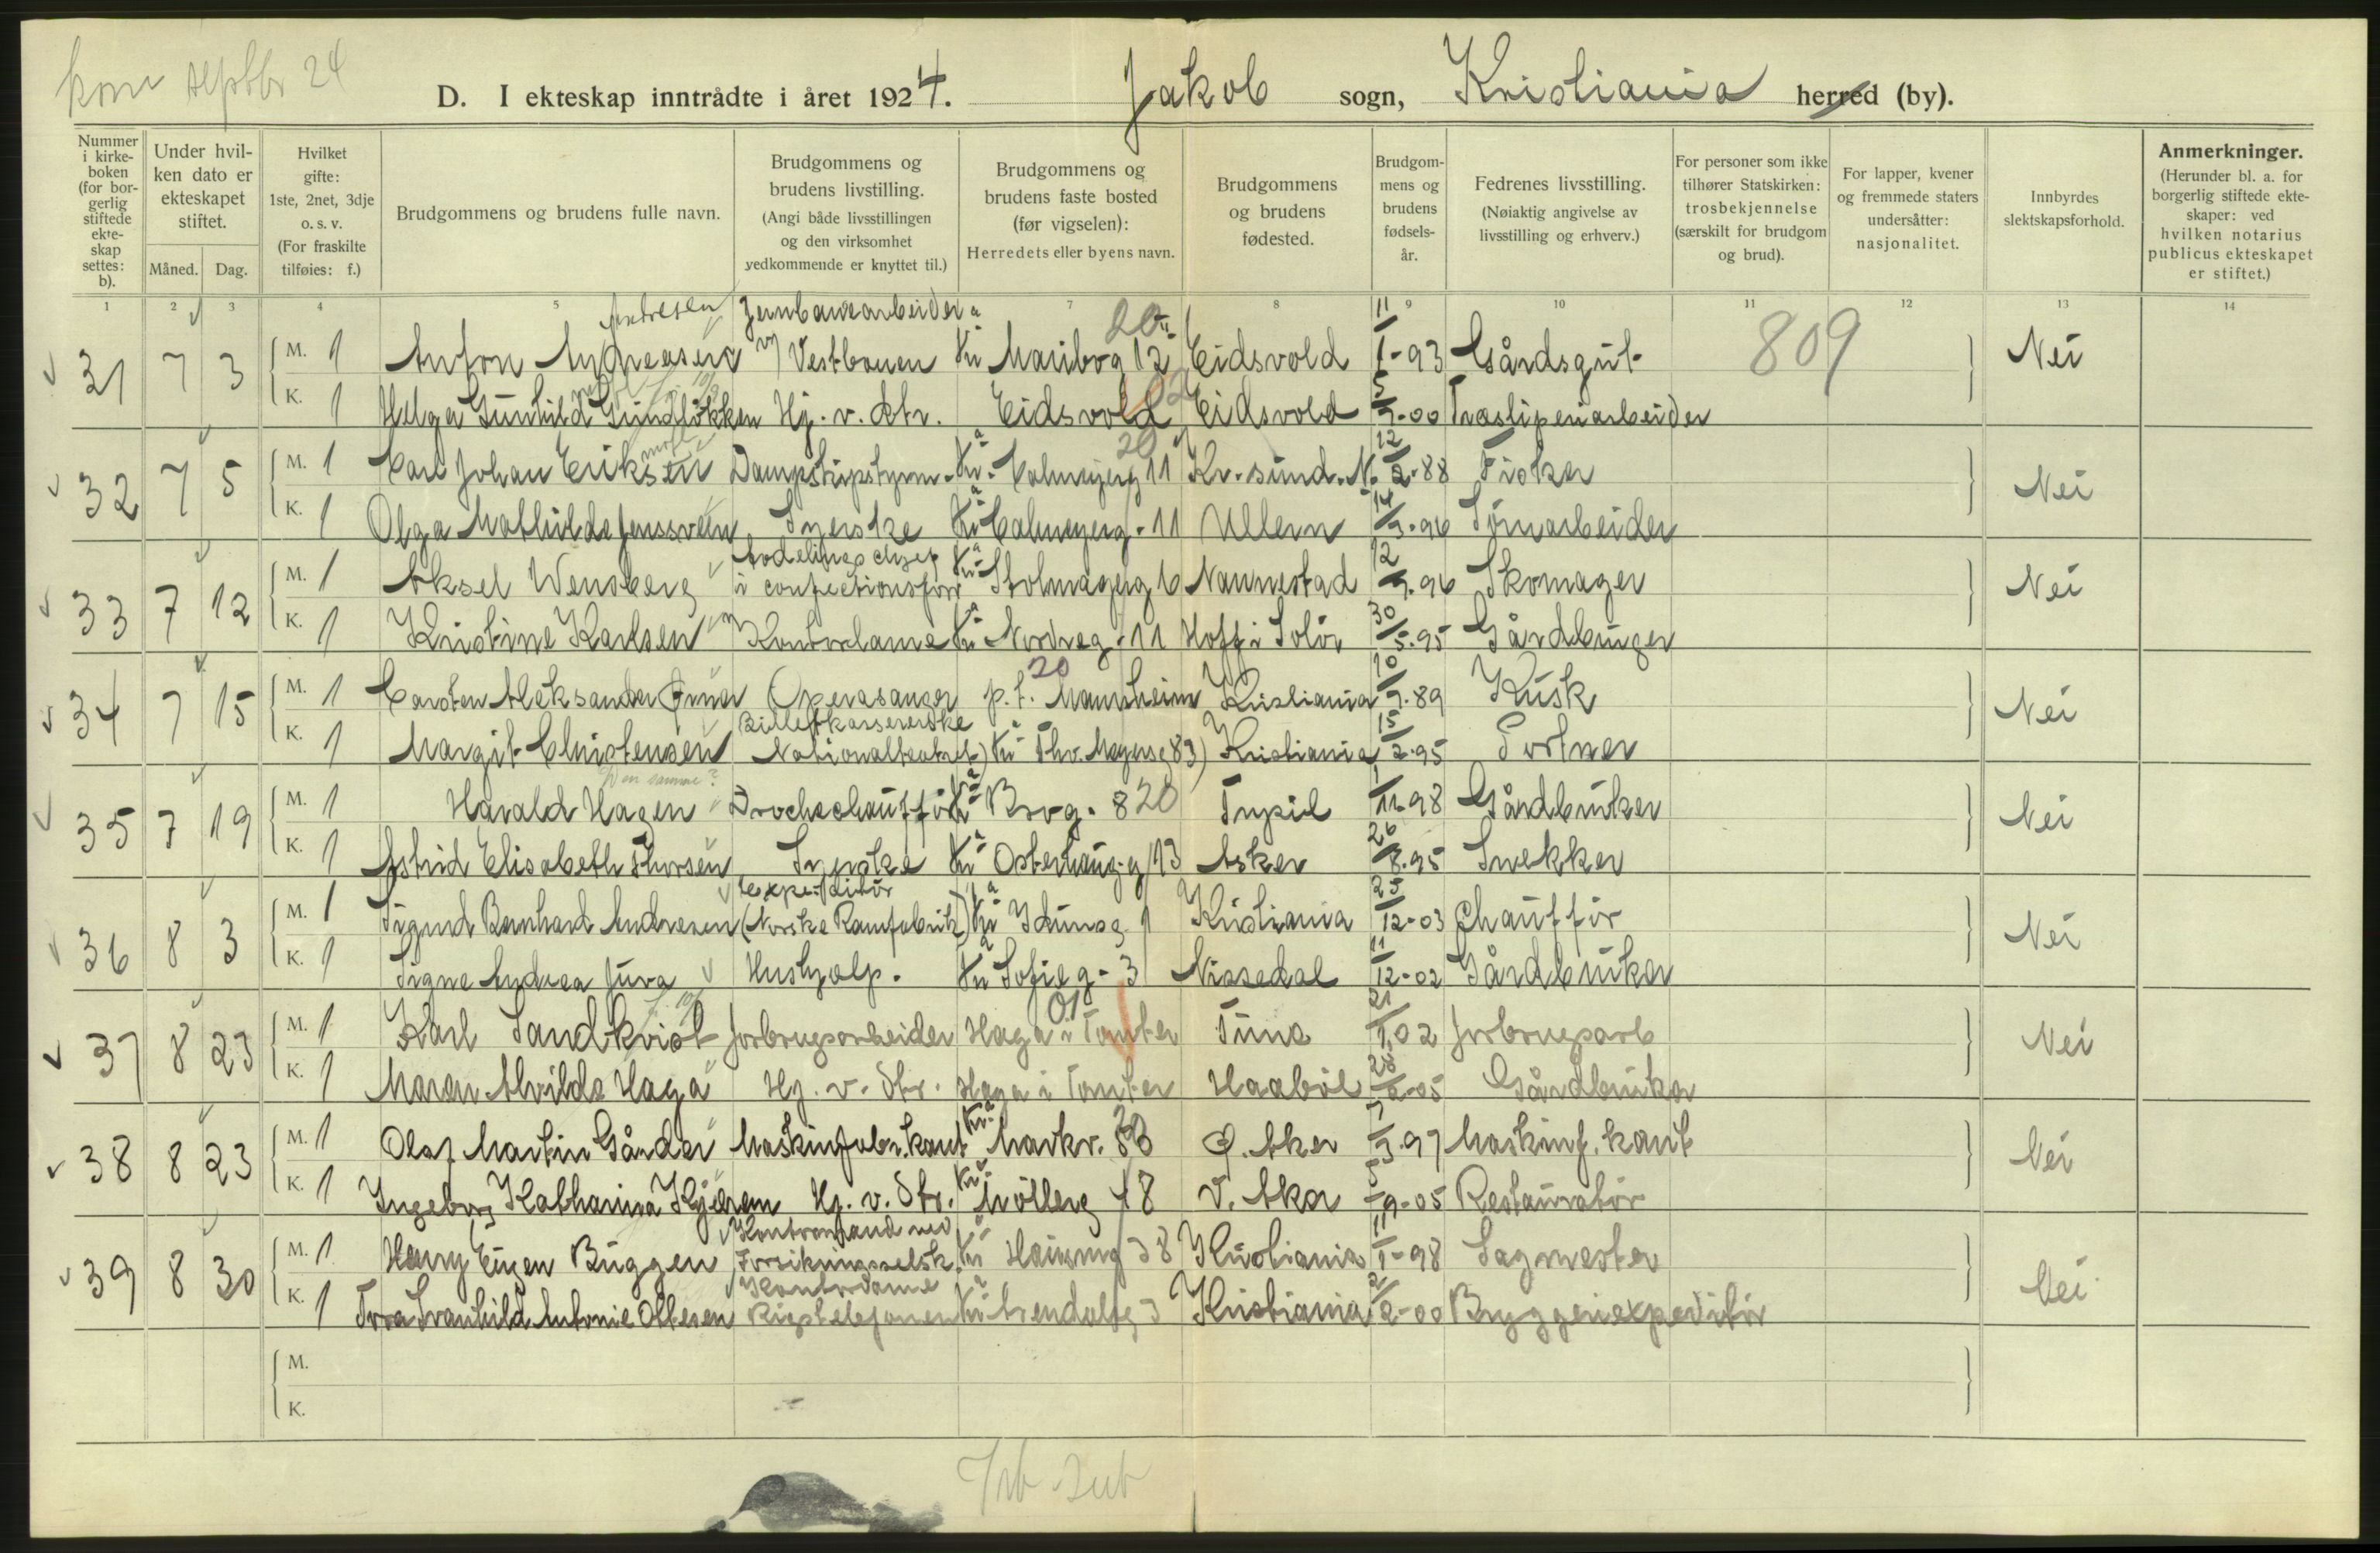 kom septbr 24
D. I ekteskap inntrådte i året 1924. Jakob sogn, Kristiania herred (by).
Nummer i kirkeboken (for borgerlig stiftede ekteskap settes: b).
Under hvilken dato er ekteskapet stiftet.
Måned. Dag.
Hvilket gifte: 1ste, 2net, 3dje o. s. v. (For fraskilte tilføies: f.)
Brudgommens og brudens fulle navn.
Brudgommens og brudens livstilling. (Angi både livsstillingen og den virksomhet vedkommende er knyttet til.)
Brudgommens og brudens faste bosted (før vigselen): Herredets eller byens navn.
Brudgommens og brudens fødested.
Brudgommens og brudens fødselsår.
Fedrenes livsstilling. (Nøiaktig angivelse av livsstilling og erhverv.)
For personer som ikke tilhører Statskirken: trosbekjennelse (særskilt for brudgom og brud).
For lapper, kvener og fremmede staters undersåtter: nasjonalitet.
Innbyrdes slektskapsforhold.
Anmerkninger. (Herunder bl. a. for borgerlig stiftede ekteskaper: ved hvilken notarius publicus ekteskapet er stiftet.)
1 2 3 4 5 7 8 9 10 11 12 13 14
Andresen Jernbanearbeider 20
31 7 3 M. 1 Anton Andreasen v/ Vestbanen Kr.a Maribog 12 Eidsvold 11/1-93 Gårdsgut 809 Nei
K. 1 Helga Gunhild Gundløkken Hj. v. str. Eidsvold 02 Eidsvold 5/9-00 Træsliperiarbeider
32 7 5 M. 1 Carl Johan Eriksen Dampskipstyrm. Kr.a Calmeyerg 11 20 Kr.sund. N. 12/2-88 Fisker Nei
K. 1 Olga Mathilde Jenssveen Syerske Kr.a Calmeyerg. 11 Ullern 14/9-96 Jernarbeider
33 7 12 M. 1 Aksel Wensberg Avdelingschef i confectionsforr Kr.a Stolmagerg 6 Nannestad 12/9-96 Skomager Nei
K. 1 Kristine Karlsen Kontordame Kr.a Nordreg. 11 Hoff i Solør 30/5-95 Gårdbruger
34 7 15 M. 1 Carsten Aleksander Operasanger p.t. Mannheim 20 Kristiania 10/9-89 Kusk Nei
K. 1 Margit Christensen Billetkassererske Nationalteatret) Kr.a Thv. Meyersg 83) Kristiania 15/2-95 Portner
Den samme?
35 7 19 M. 1 Harald Hagen Droschechauffør Kr.a Brog. 8 20 Trysil 1/11-98 Gårdbruker Nei
K. 1 Astrid Elisabeth Thorsen Syerske Kr.a Osterhausg 13 Asker 26/8-95 Snekker
36 8 3 M. 1 Sigurd Bernhard Andresen Expeditør (Norske Ramfabrik) Kr.a Idunsg. 1 Kristiania 25/12-03 Chauffør Nei
K. 1 Signe Andrea Juva Hushjælp. Kr.a Sofieg. 3 Nissedal 11/12-02 Gårdbruker
37 8 23 M. 1 Karl Sandkvist Jordbrugsarbeider Haga i Tomter 01 Tune 21/1-02 Jordbrugsarb Nei
K. 1 Maren Alvilde Haga Hj. v. str. Haga i Tomter Haabøl 28/2-05 Gårdbruker
38 8 23 M. 1 Olaf Martin Gårder Maskinfabrikant Kr.a Markv. Ø. Aker 7/3-97 Maskinf.kant Nei
K. 1 Ingeborg Katharina Kjærem Hj. v. str. Kr.a Mølleng 18 V. Aker 5/9-05 Restauratør
39 8 30 M. 1 Henry Eugen Buggen Kontormand ved Forsikringsselsk. Kr.a Hausmg 38 Kristiania 11/1-98 Sagmester Nei
K. 1 Tora Svanhild Antonie Ottesen Kontordame Rigstelefonen Kr.a 3 Kristiania 2/2-00 Bryggeriexpeditør
M.
K.